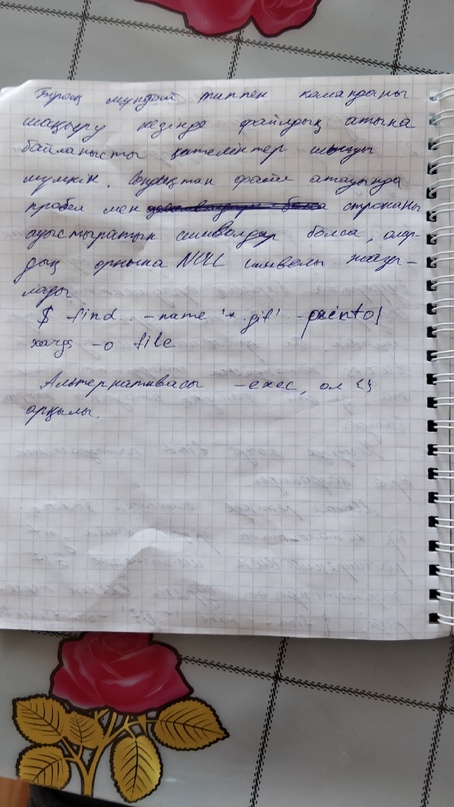 Бірақ мұндай типпен команданы
шақыру кезінде файлдың атына
байланысты қателіктер шығуы
мүмкін. Сондықтан файл атауында
пробел мен строканы
ауыстыратын символдар болса, олар-
дың орнына NULL символы жазы-
лады.
$ find . -name '*.gif' -print0 |
xargs -0 file
Альтернативасы -exec, ол {}
арқылы.